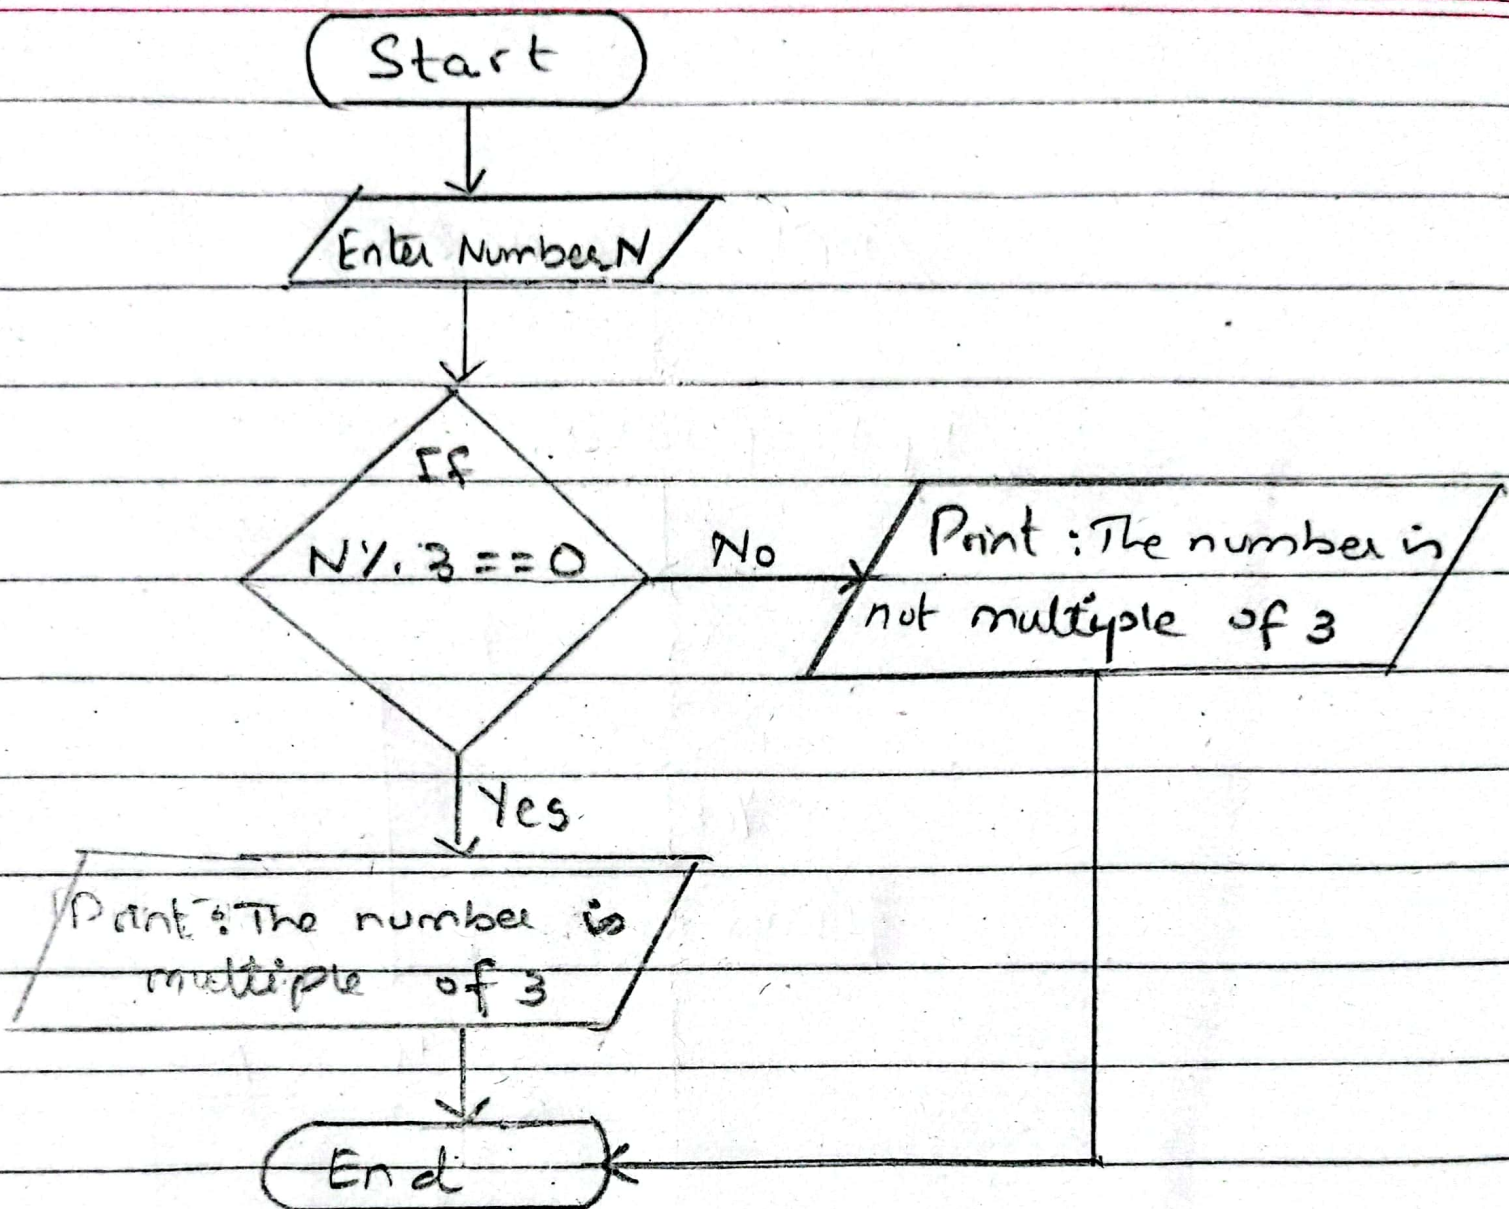 Start
Enter Number N
If
N % 3 == 0
No
Print : The number is
not multiple of 3
Yes
Print : The number is
multiple of 3
End